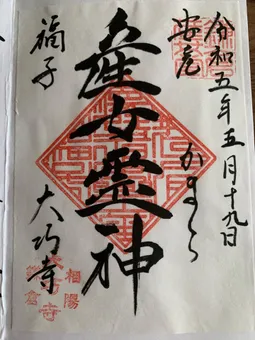 令和五年五月十九日
安産
かまくら
産女霊神
福子
大巧寺
相陽
大巧寺